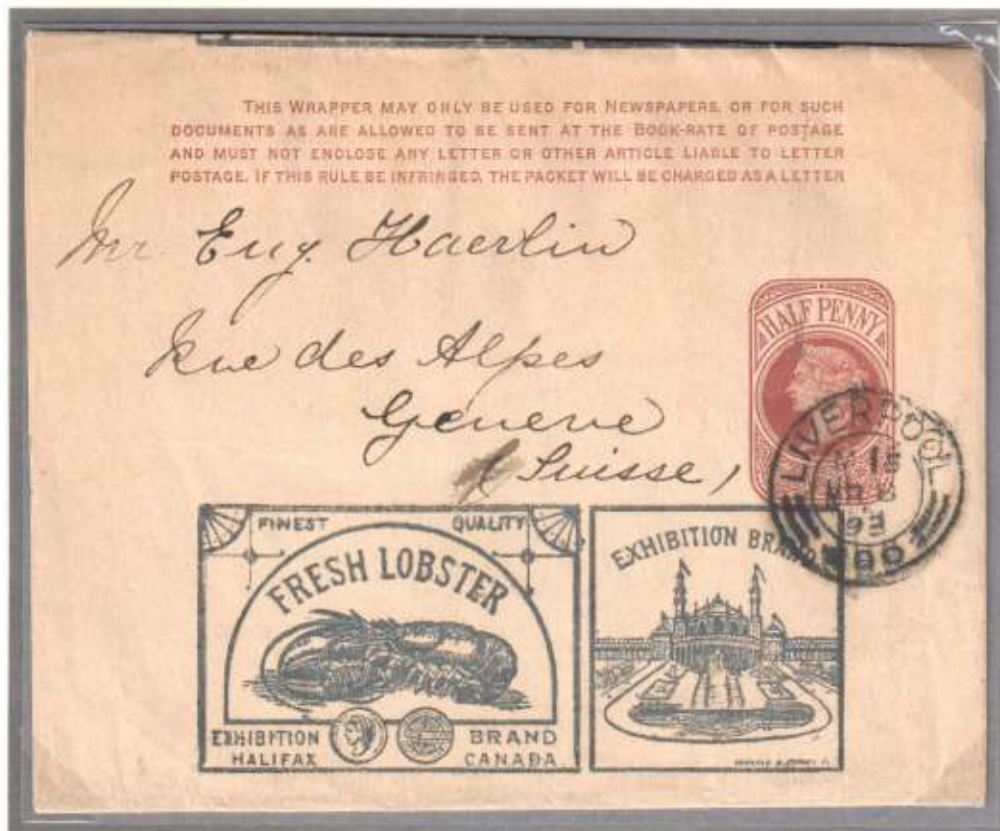 THIS WRAPPER MAY ONLY BE USED FOR NEWSPAPERS, OR FOR SUCH
DOCUMENTS AS ARE ALLOWED TO BE SENT AT THE BOOK-RATE OF POSTAGE
AND MUST NOT ENCLOSE ANY LETTER OR OTHER ARTICLE LIABLE TO LETTER
POSTAGE. IF THIS RULE BE INFRINGED, THE PACKET WILL BE CHARGED AS A LETTER
Mr. Eug. Haerlin
Rue des Alpes
Geneve
(Suisse)
HALF PENNY
LIVERPOOL
93
FINEST QUALITY
FRESH LOBSTER
EXHIBITION BRAND
HALIFAX CANADA.
EXHIBITION BRAND